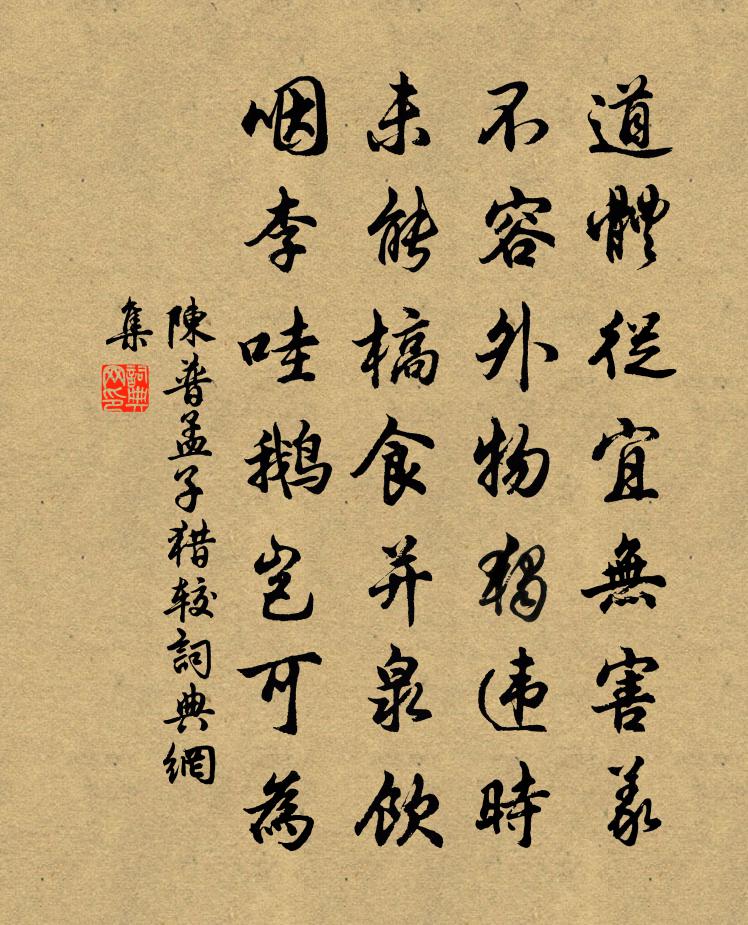 道體從宜無害義
不容外物獨违時
未能槁食并泉飲
咽李哇鵝岂可為
陳普孟子猎较詞典網
集
詞典
网印